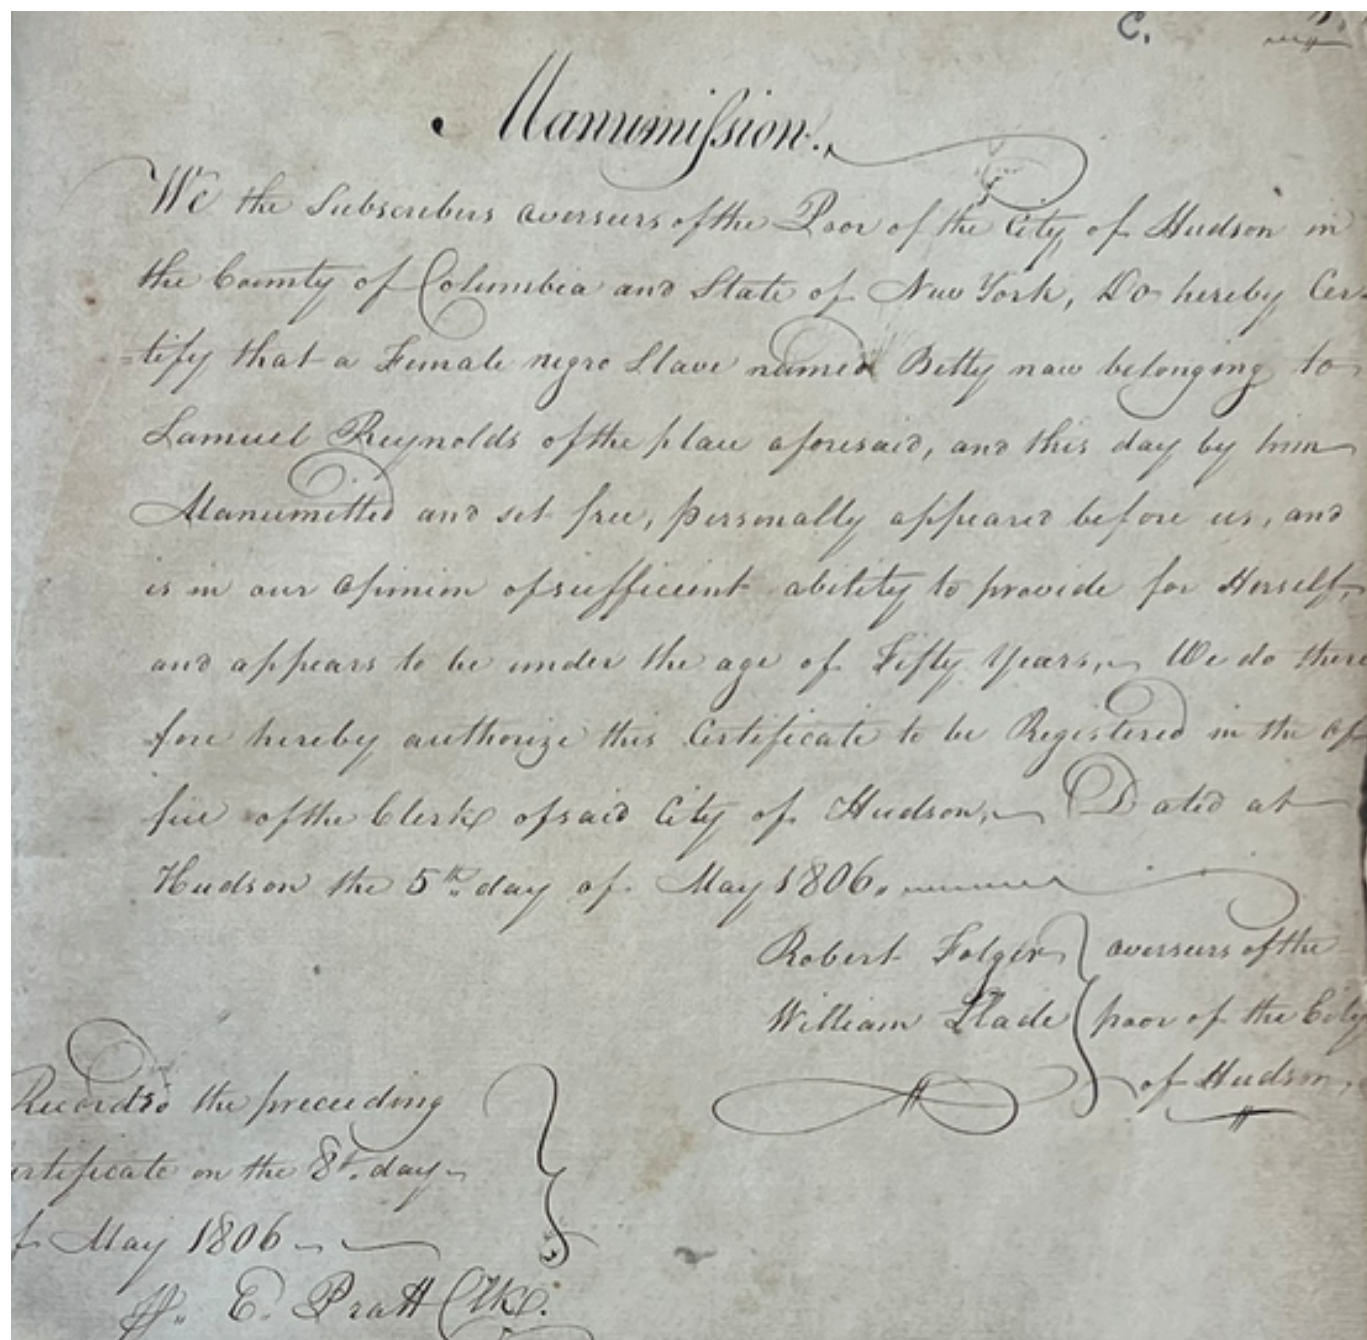 C.
Manumission.
We the Subscribers overseers of the Poor of the City of Hudson in
the County of Columbia and State of New York, Do hereby Cer-
=tify that a Female negro Slave named Betty now belonging to
Samuel Reynolds of the place aforesaid, and this day by him
Manumitted and set free, personally appeared before us, and
is in our opinion of sufficient ability to provide for Herself,
and appears to be under the age of Fifty Years, We do there
fore hereby authorize this Certificate to be Registered in the of
fice of the Clerk of said City of Hudson, Dated at
Hudson the 5th day of May 1806.
Robert Folger overseers of the
William Slade poor of the City
of Hudson,
Recorded the preceeding
ertificate on the 8th. day
f May 1806
E. Pratt Clk.